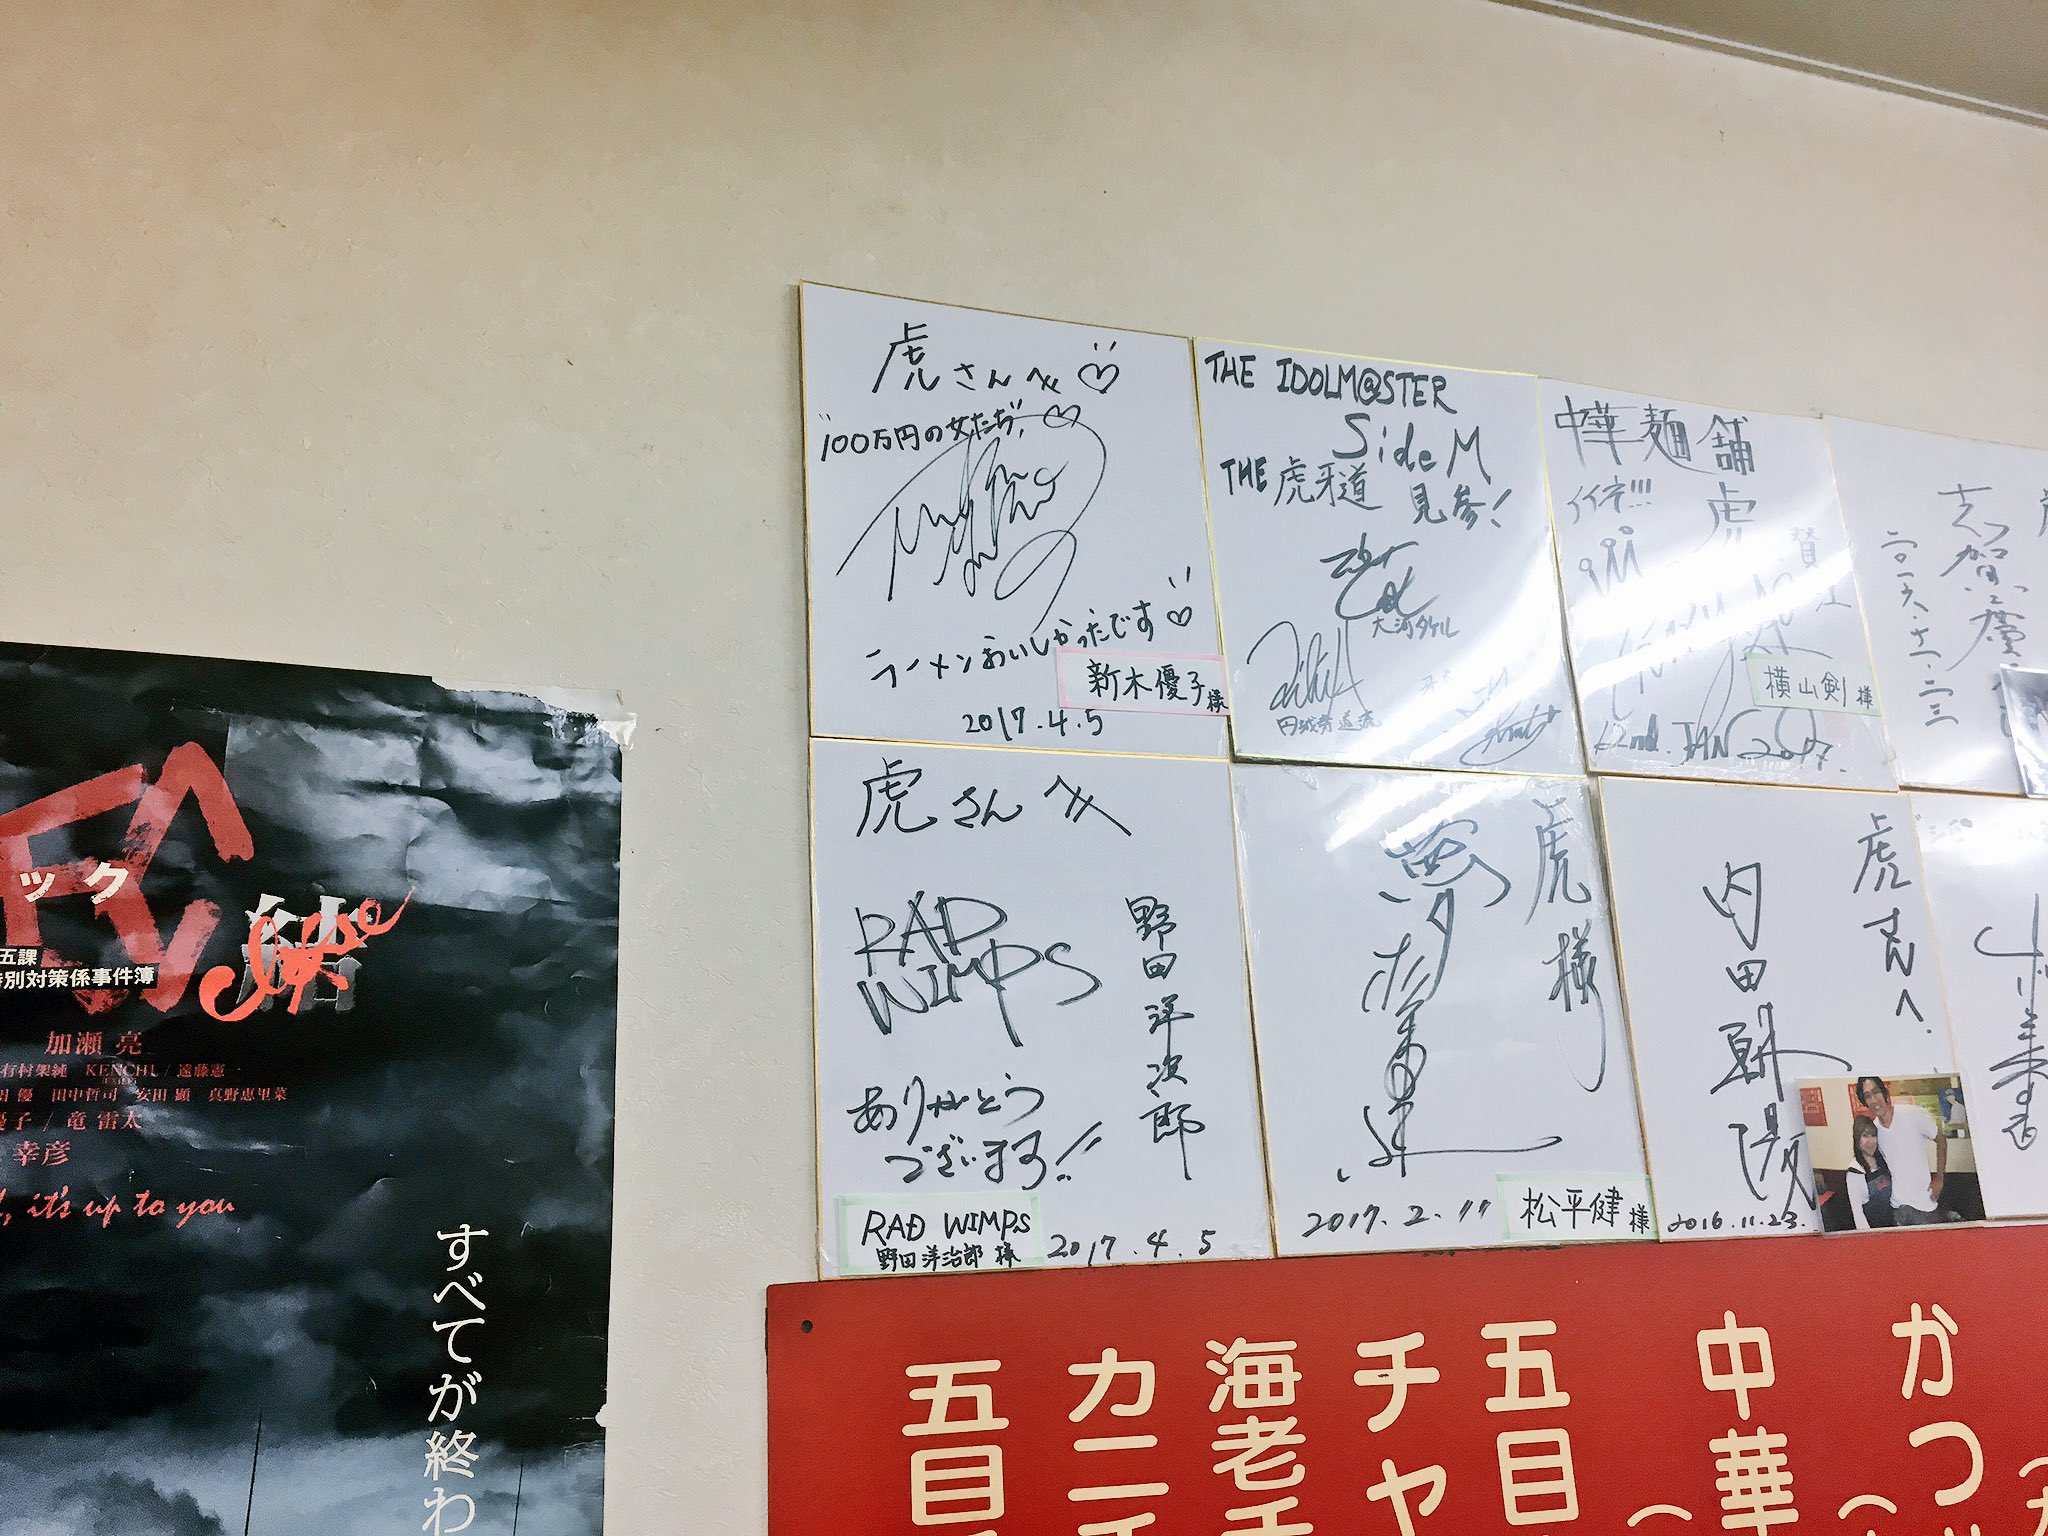 ック
結
close
五課
特別対策係事件簿
加瀬 亮
有村架純 KENCHI / 遠藤憲一
田中哲司 安田 顕 真野恵里菜
優子 / 竜 雷太
幸彦
it's up to you
すべてが終わ
虎さんへ♡
"100万円の女たち"♡
ラーメンおいしかったです♡
新木優子様
2017.4.5
THE IDOLM@STER
SideM
THE 虎牙道
見参!
大河タケル
円城寺道流
中華麺舗
虎
イイネ!!!
横山剣様
22nd. JAN 2017.
志賀廣
二〇一六.十一.二三
虎さんへ
RAD
WIMPS
野田洋次郎
ありがとう
ございます!!
RAD WIMPS
野田洋治郎 様
2017.4.5
虎様
夢
2017.2.11
松平健様
虎さんへ.
内田朝陽
2016.11.23.
五目
カニ
海老チ
チャ
五目
中華
かつ